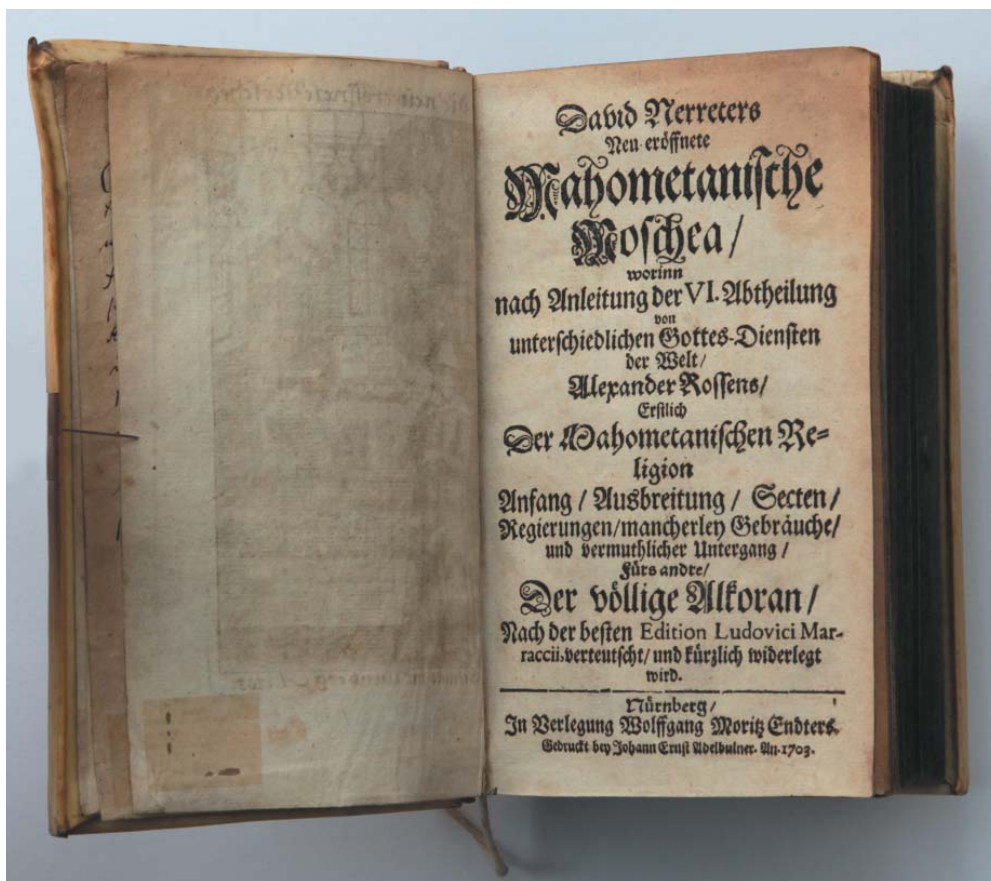 David Nerreters
Neu eröffnete
Mahometanische
Moschea /
worinn
nach Anleitung der VI. Abtheilung
von
unterschiedlichen Gottes-Diensten
der Welt /
Alexander Rossens /
Erstlich
Der Mahometanischen Re=
ligion
Anfang / Ausbreitung / Secten /
Regierungen / mancherley Gebräuche /
und vermuthlicher Untergang /
Fürs andre /
Der völlige Alkoran /
Nach der besten Edition Ludovici Mar-
raccii, verteutscht / und kürzlich widerlegt
wird.
Nürnberg /
In Verlegung Wolffgang Moritz Endters.
Gedruckt bey Johann Ernst Adelbulner. An. 1703.